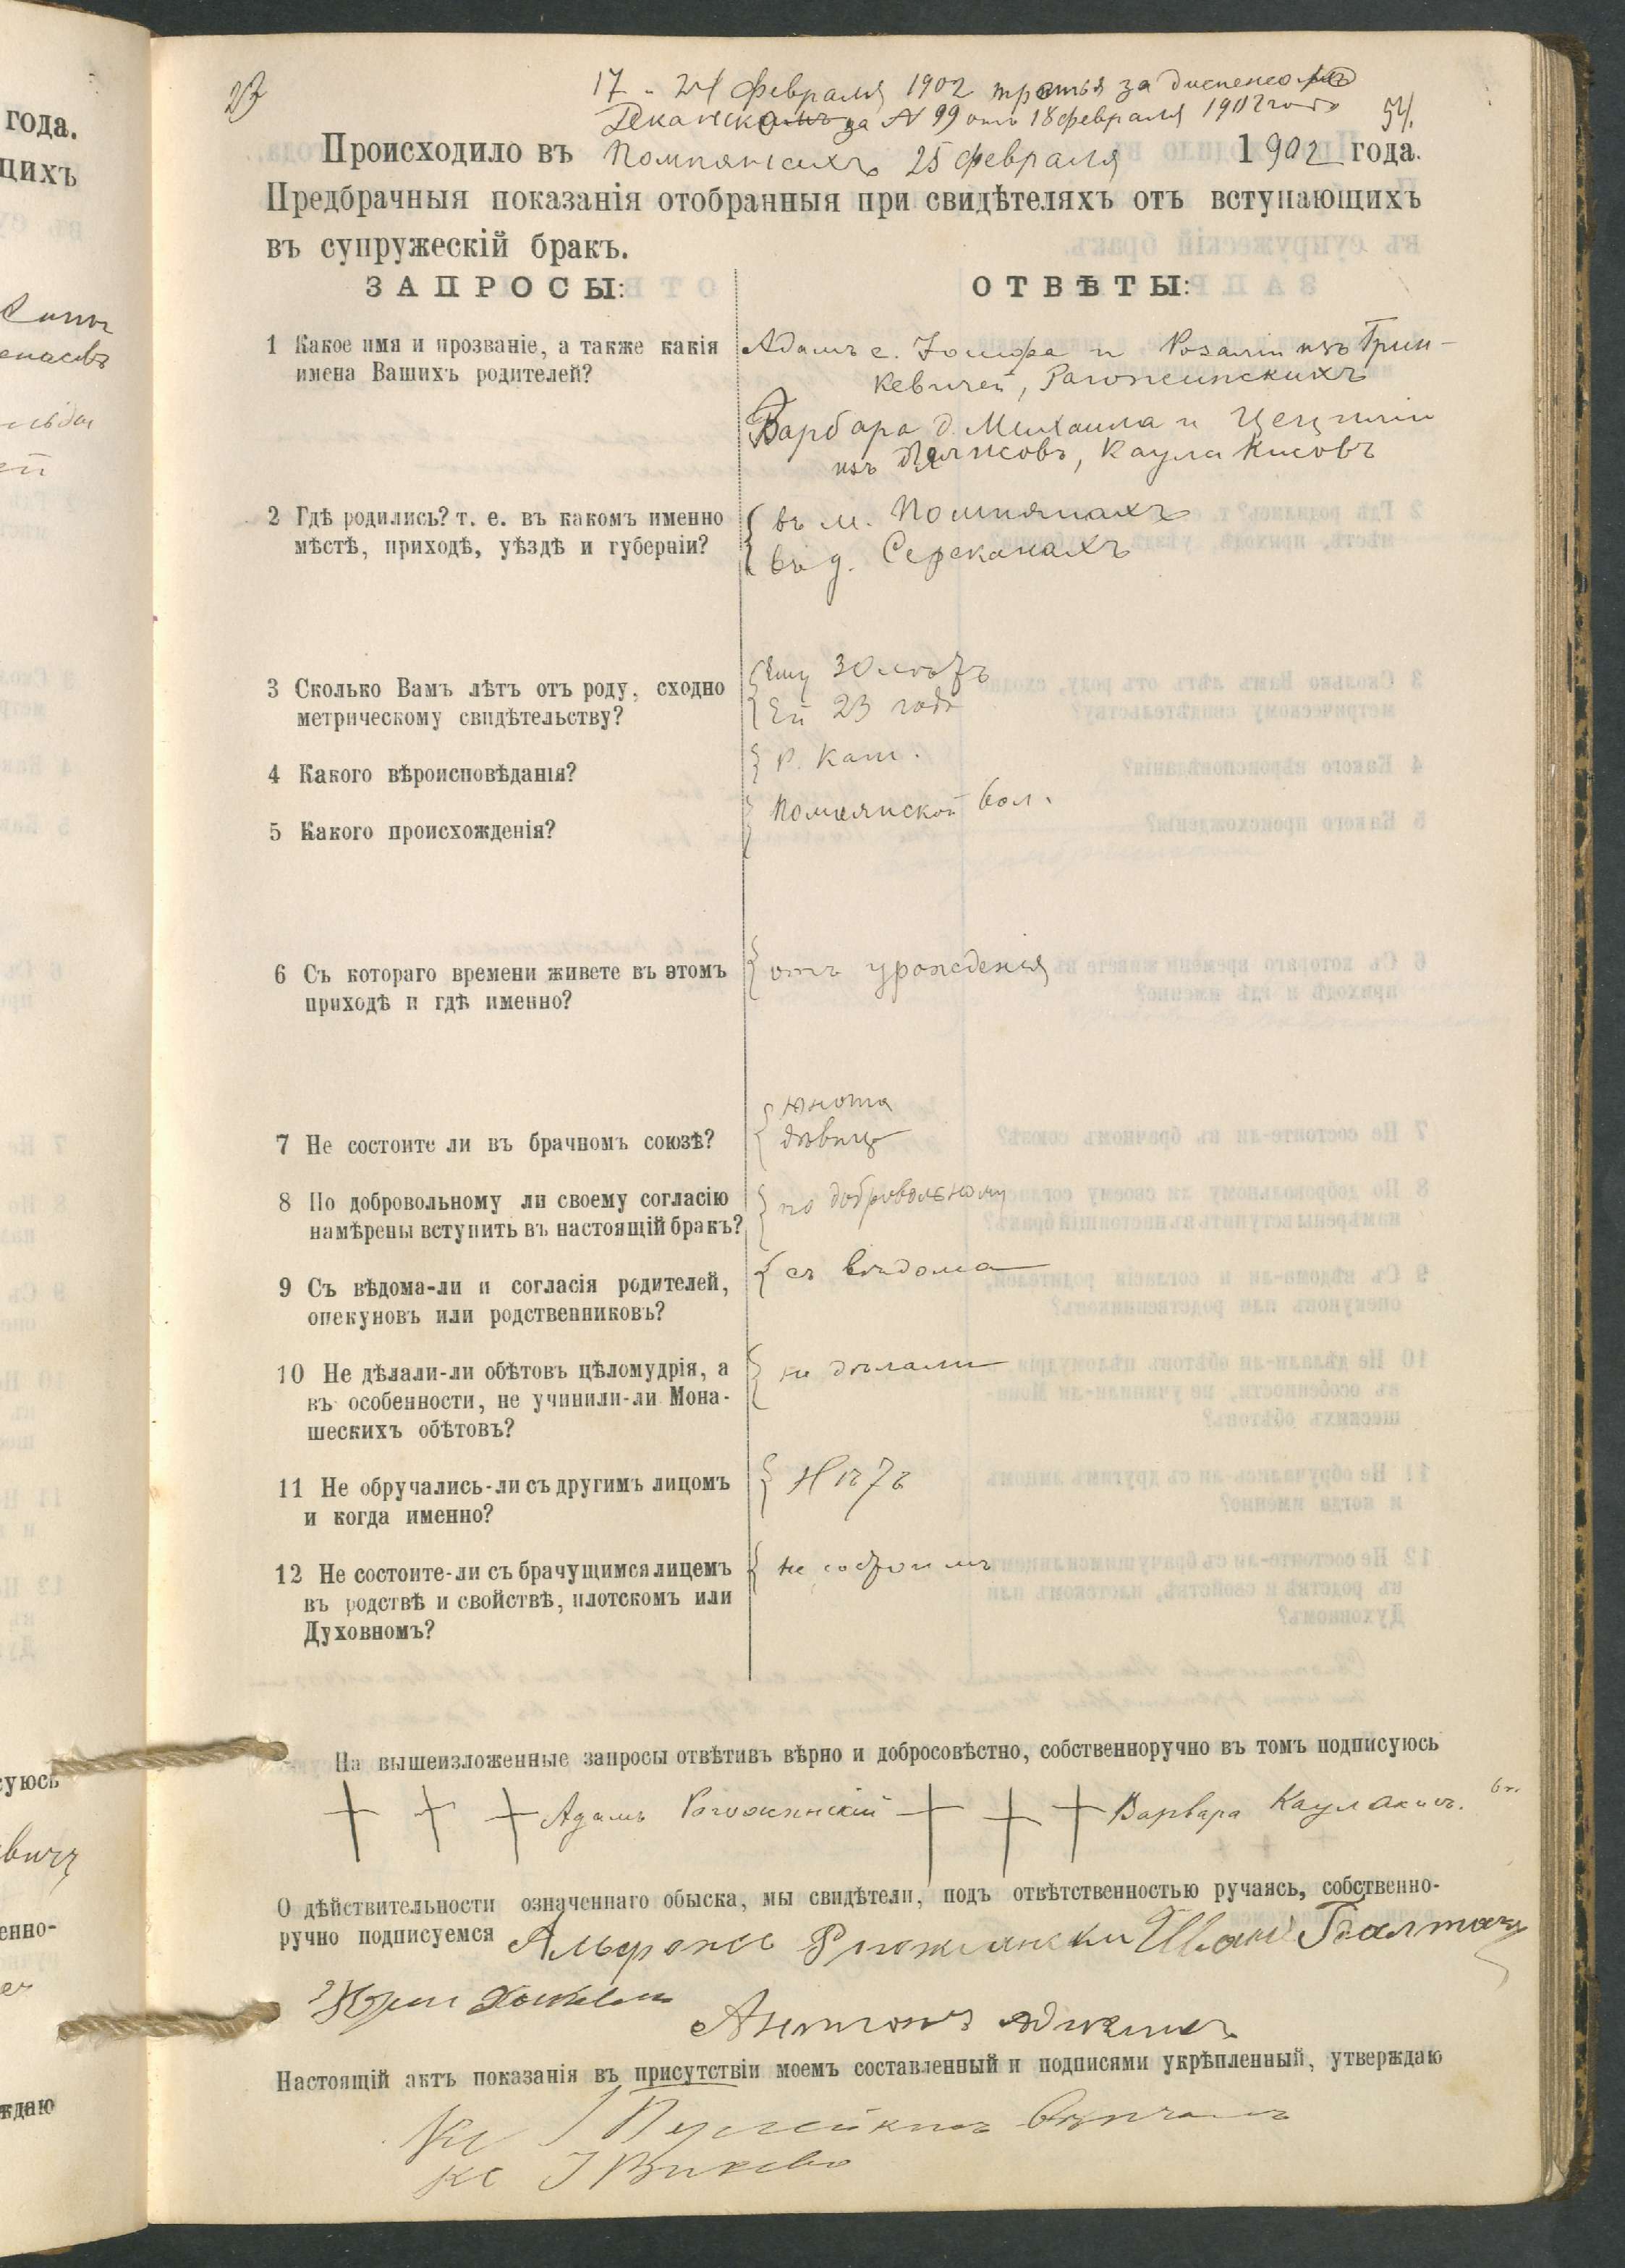 года.
щихъ
23
17 - 24 февраля 1902 третья за диспенсою
Деканскою за N 99 отъ 18 февраля 1902 года
54.
Происходило въ Помпянахъ 25 февраля 1902 года.
Предбрачныя показанія отобранныя при свидѣтеляхъ отъ вступающихъ
въ супружескій бракъ.
ЗАПРОСЫ:
ОТВѢТЫ:
1 Какое имя и прозваніе, а также какія
имена Вашихъ родителей?
Адамъ с. Іосифа и Розаліи изъ Грин-
кевичей, Рагожинскихъ
Варбара д. Михаила и Цециліи
изъ Каулакисовъ
2 Гдѣ родились? т. е. въ какомъ именно
мѣстѣ, приходѣ, уѣздѣ и губерніи?
въ м. Помпянахъ
въ д. Сереканахъ
3 Сколько Вамъ лѣтъ отъ роду, сходно
метрическому свидѣтельству?
Ему 30 лѣтъ
Ей 23 года
4 Какого вѣроисповѣданія?
Р. Кат.
5 Какого происхожденія?
Помпянской вол.
6 Съ котораго времени живете въ этомъ
приходѣ и гдѣ именно?
отъ урожденія
7 Не состоите ли въ брачномъ союзѣ?
юноша
дѣвица
8 По добровольному ли своему согласію
намѣрены вступить въ настоящій бракъ?
по добровольному
9 Съ вѣдома-ли и согласія родителей,
опекуновъ или родственниковъ?
съ вѣдома
10 Не дѣлали-ли обѣтовъ цѣломудрія, а
въ особенности, не учинили-ли Мона-
шескихъ обѣтовъ?
не дѣлали
11 Не обручались-ли съ другимъ лицомъ
и когда именно?
Нѣтъ
12 Не состоите-ли съ брачущимся лицемъ
въ родствѣ и свойствѣ, плотскомъ или
Духовномъ?
не состоимъ
На вышеизложенные запросы отвѣтивъ вѣрно и добросовѣстно, собственноручно въ томъ подписуюсь
Адамъ Рогожинскій
Варвара Каулакисъ.
О дѣйствительности означеннаго обыска, мы свидѣтели, подъ отвѣтственностью ручаясь, собственно-
ручно подписуемся Альфонсъ
Антонъ
Настоящій актъ показанія въ присутствіи моемъ составленный и подписями укрѣпленный, утверждаю
Кс
Кс І